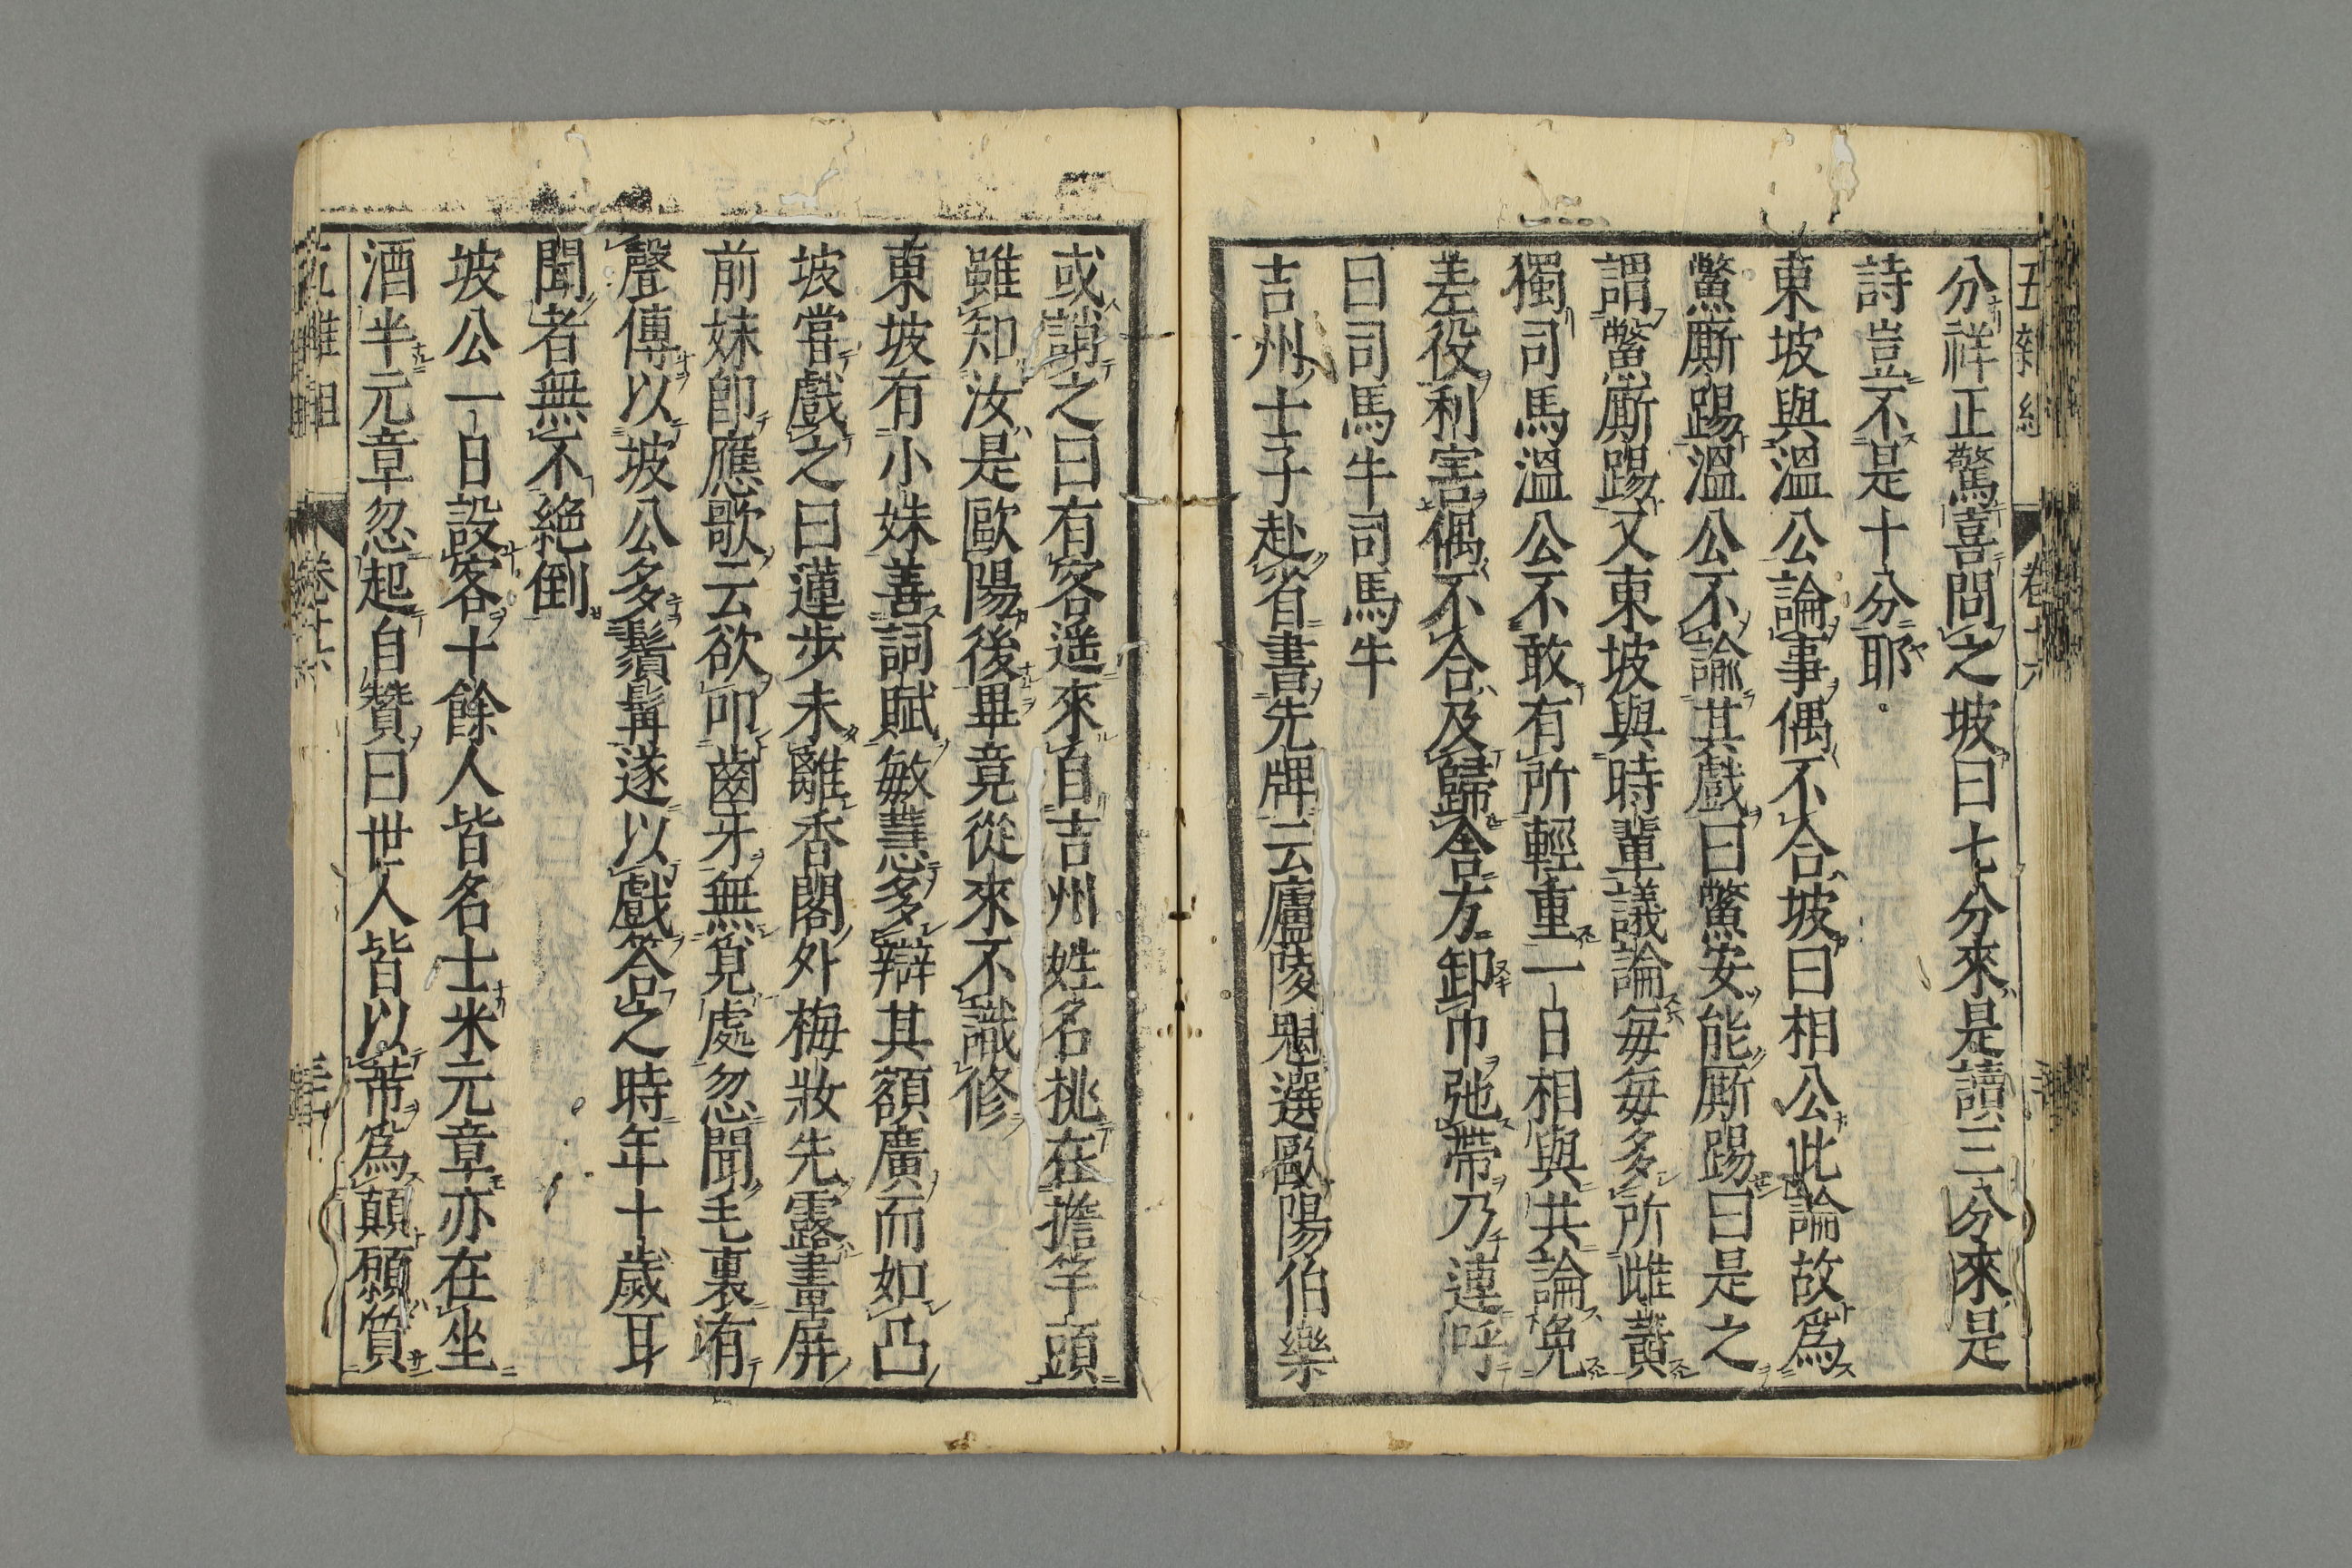 分祥正驚喜問之坡曰七分來是讀三分來是
詩豈不是十分耶
東坡與溫公論事偶不合坡曰相公此論故爲
鱉厮踢溫公不諭其戲曰鱉安能厮踢曰是之
謂鱉厮踢又東坡與時輩議論每每多所雌黃
獨司馬溫公不敢有所輕重一日相與共論免
差役利害偶不合及歸舍方卸巾弛帶乃連呼
曰司馬牛司馬牛
吉州士子赴省書先牌云廬陵魁選歐陽伯樂
或誚之曰有客遥來自吉州姓名挑在擔竿頭
雖知汝是歐陽後畢竟從來不識修
東坡有小妹善詞賦敏慧多辯其額廣而如凸
坡嘗戲之曰蓮步未離香閣外梅妝先露畫屏
前妹卽應歌云欲叩齒牙無覓處忽聞毛裏有
聲傳以坡公多鬚髯遂以戲答之時年十歲耳
聞者無不絕倒
坡公一日設客十餘人皆名士米元章亦在坐
酒半元章忽起自贊曰世人皆以芾爲顛願質